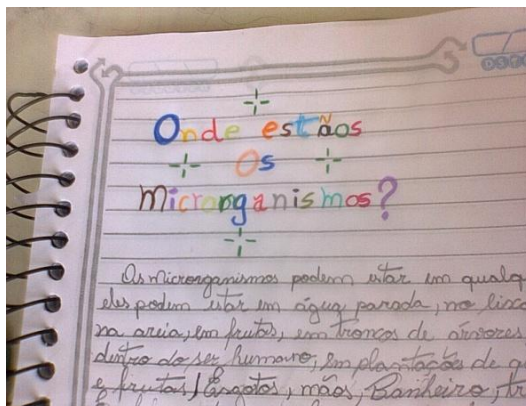 Onde estãos
Os
Microrganismos?
Os microrganismos podem estar em qualq
eles podem estar em água parada, no lixo
na areia, em frutas, em troncos de árvores
dentro do ser humano, em plantações de
e frutas, Esgotos, mãos, Banheiro, tr